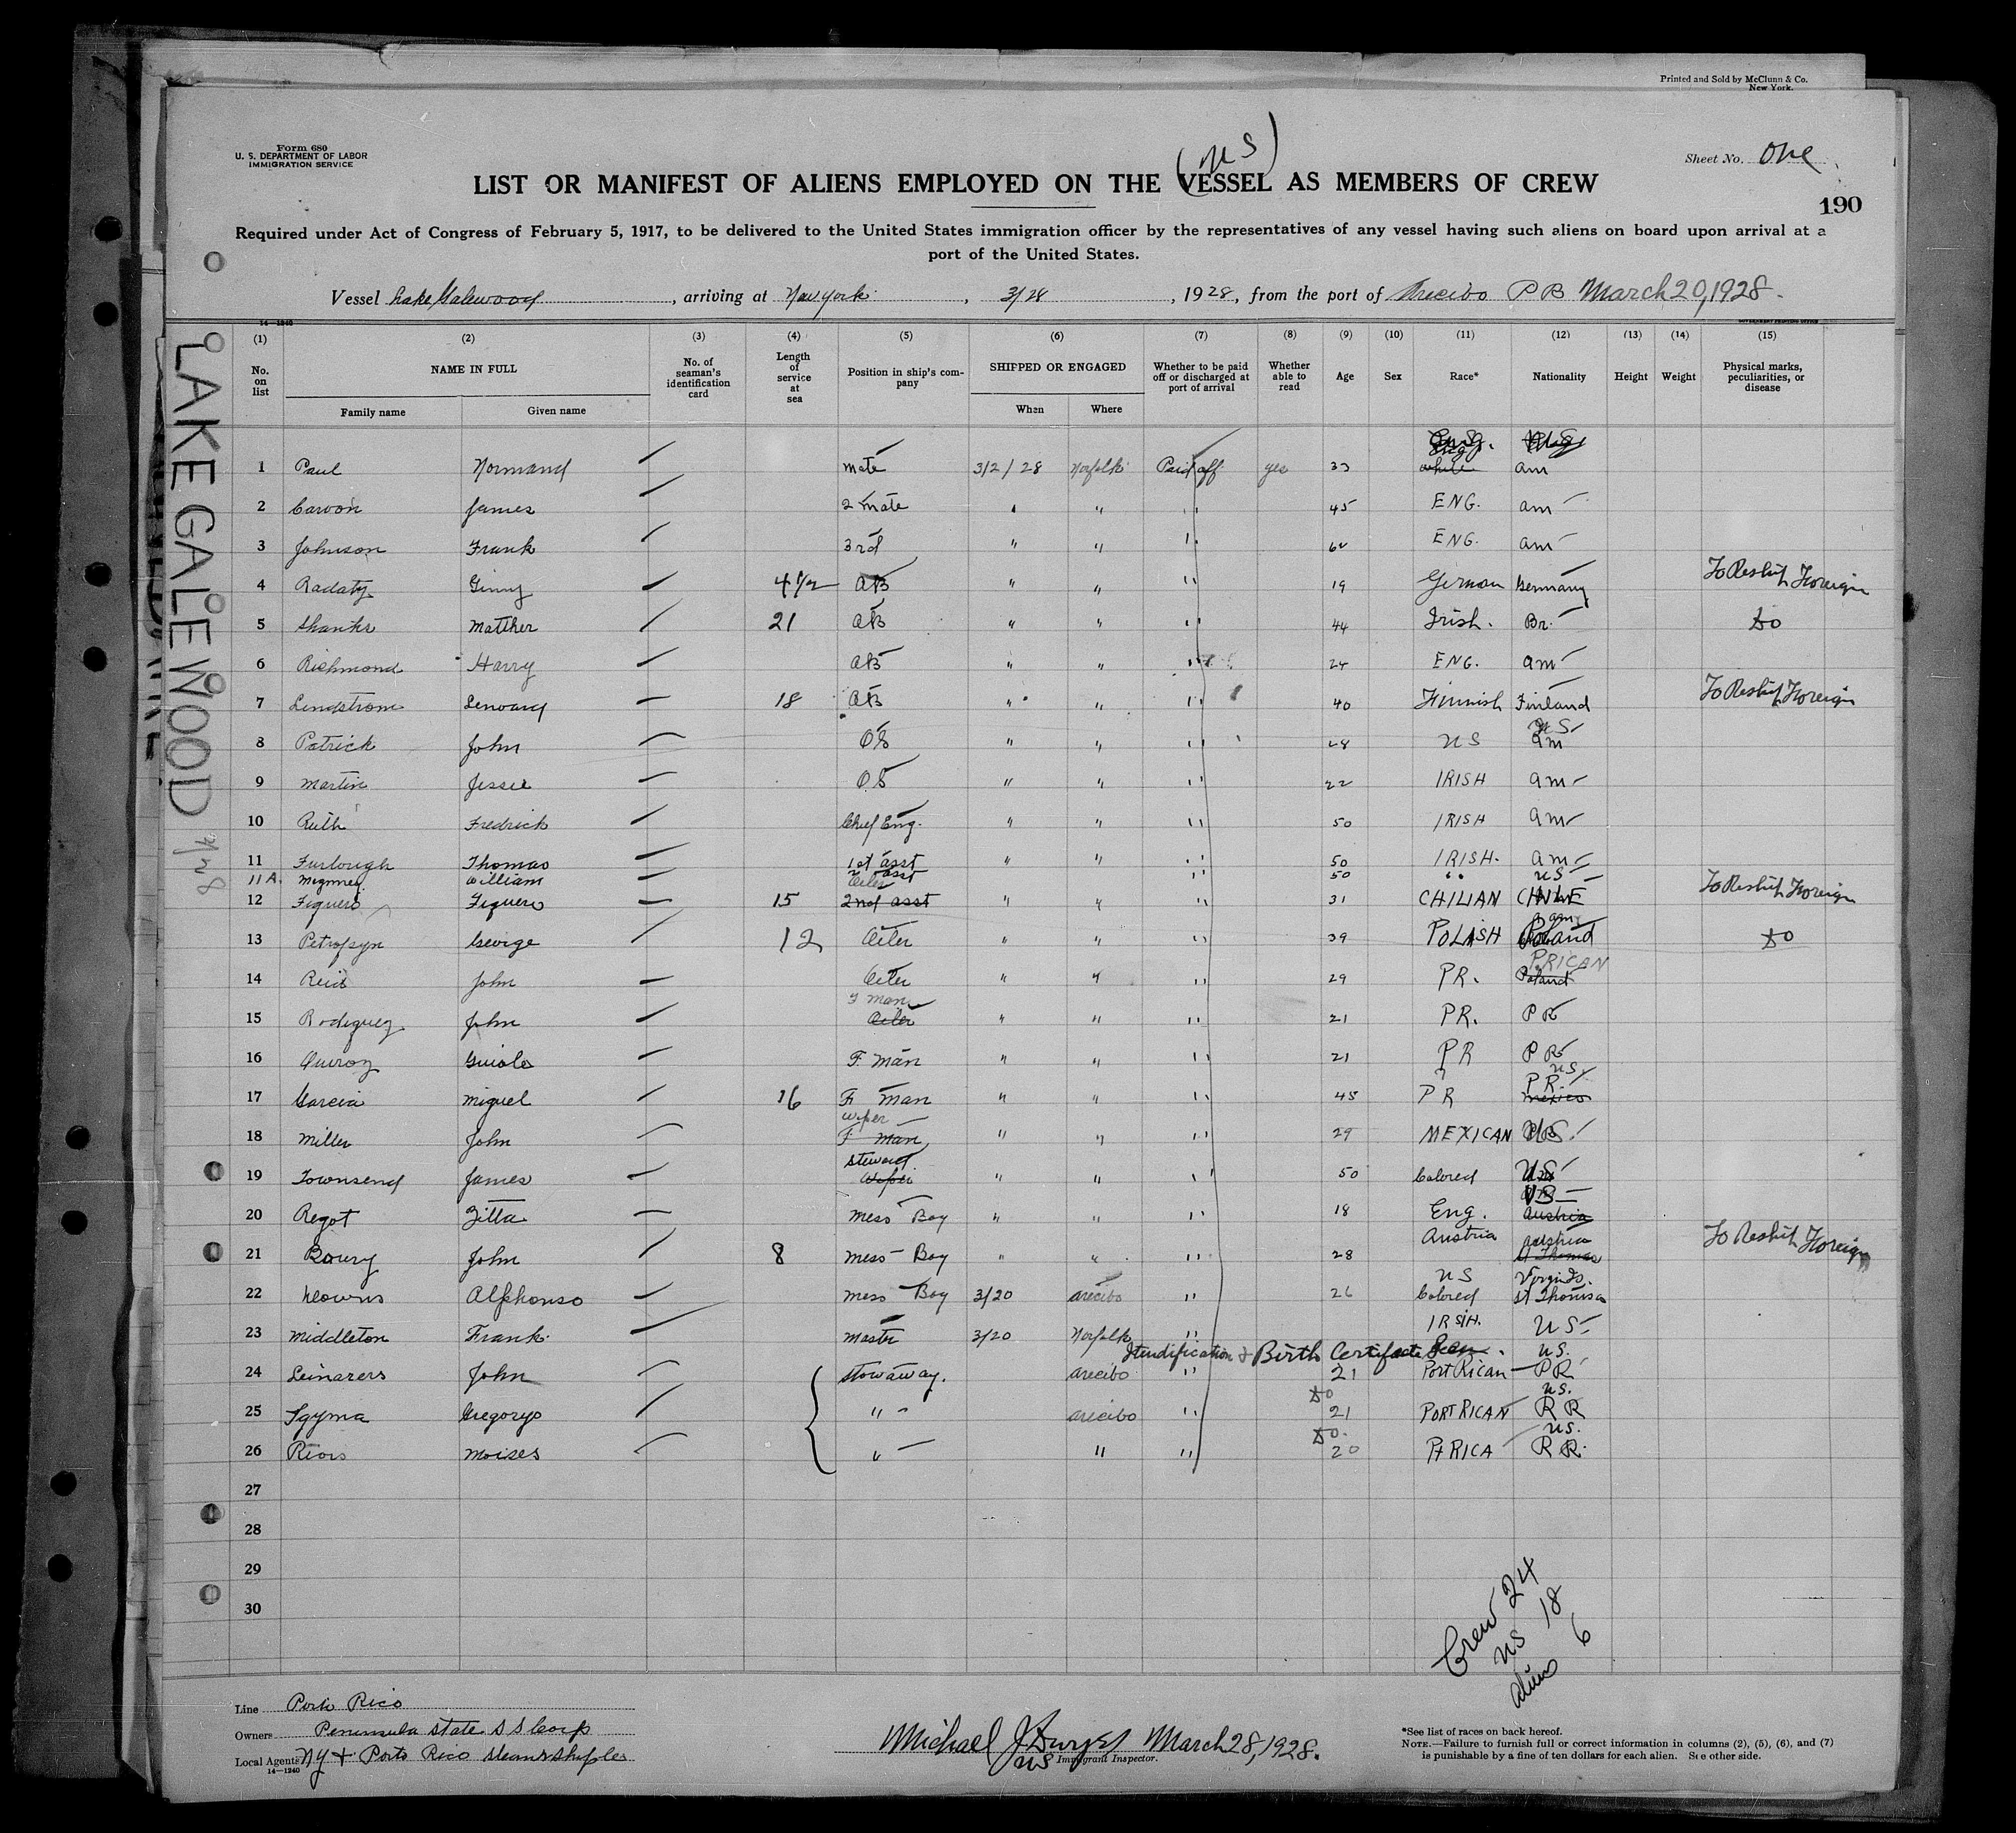 Printed and Sold by McClunn & Co.
New York.
Form 680
U. S. DEPARTMENT OF LABOR
IMMIGRATION SERVICE
Sheet No. One
(US)
LIST OR MANIFEST OF ALIENS EMPLOYED ON THE VESSEL AS MEMBERS OF CREW
190
Required under Act of Congress of February 5, 1917, to be delivered to the United States immigration officer by the representatives of any vessel having such aliens on board upon arrival at a
port of the United States.
Vessel Lake Galewood, arriving at New York, 3/28, 1928, from the port of Arecibo P R March 20, 1928.
14—1240
LAKE GALEWOOD
(1) (2) (3) (4) (5) (6) (7) (8) (9) (10) (11) (12) (13) (14) (15)
No. on list NAME IN FULL No. of seaman's identification card Length of service at sea Position in ship's company SHIPPED OR ENGAGED Whether to be paid off or discharged at port of arrival Whether able to read Age Sex Race* Nationality Height Weight Physical marks, peculiarities, or disease
Family name Given name When Where
1 Paul Normand mate 3/2/28 Norfolk Paid off yes 33 white am
2 Carvon James 2 mate " " " 45 ENG. am
3 Johnson Frank 3rd " " " ENG. am
4 Radatz Ginny 4 1/2 AB " " " 19 German Germany To Reship Foreign
5 Shanks Matther 21 AB " " " 44 Irish. Br. Do
6 Richmond Harry AB " " " 24 ENG. am
7 Lindstrom Lenvard 18 AB " " " 40 Finnish Finland To Reship Foreign
8 Patrick John OS " " " 28 US US am
9 Martin Jessie OS " " " 22 IRISH am
10 Ruth Fredrick Chief Eng. " " " 50 IRISH am
11 Furlough Thomas 1st asst " " " 50 IRISH. am
11A. William asst " 50 " US
12 Figuero Figuero Oiler 2nd asst 15 " " " 31 CHILIAN CHILE To Reship Foreign
13 Petrosyn George 12 Oiler " " " 39 POLISH Poland Do
14 Reid John Oiler " " " 29 PR. P.RICAN Poland
15 Rodiguez John F man Oiler " " " 21 PR. PR
16 Quiroz Guiole F. man " " " 21 PR PR
17 Garcia Miguel 16 Fr man " " " 45 PR US PR Mexico
18 Miller John Wiper F man " " " 29 MEXICAN US
19 Townsend James Steward Wiper " " " 50 Colored US
20 Regot Zitta mess Boy " " " 18 Eng. US Austria
21 Boury John 8 mess Boy " " " 28 Austria Austria St Thomas To Reship Foreign
22 Downs Alphonso mess Boy 3/20 Arecibo " 26 US Colored St Thomas
23 Middleton Frank. Master 3/20 Norfolk " IRSIH. US
Itendification & Birth Certifacate Seen. US.
24 Leinarers John Stowaway. Arecibo " 21 Port Rican PR
25 Sgyma Gregoryo " Arecibo " Do 21 PORT RICAN US. RR
26 Riois Moises " " " Do. 20 Pt RICA US. RR.
27
28
29
30
Crew 24
US 18
Aliens 6
Line Porto Rico
Owners Peninsula State S S Corp
Local Agents NY & Porto Rico Steamship
14—1240
Michael J. Dwyer March 28, 1928.
US Immigrant Inspector.
*See list of races on back hereof.
NOTE.—Failure to furnish full or correct information in columns (2), (5), (6), and (7)
is punishable by a fine of ten dollars for each alien. See other side.